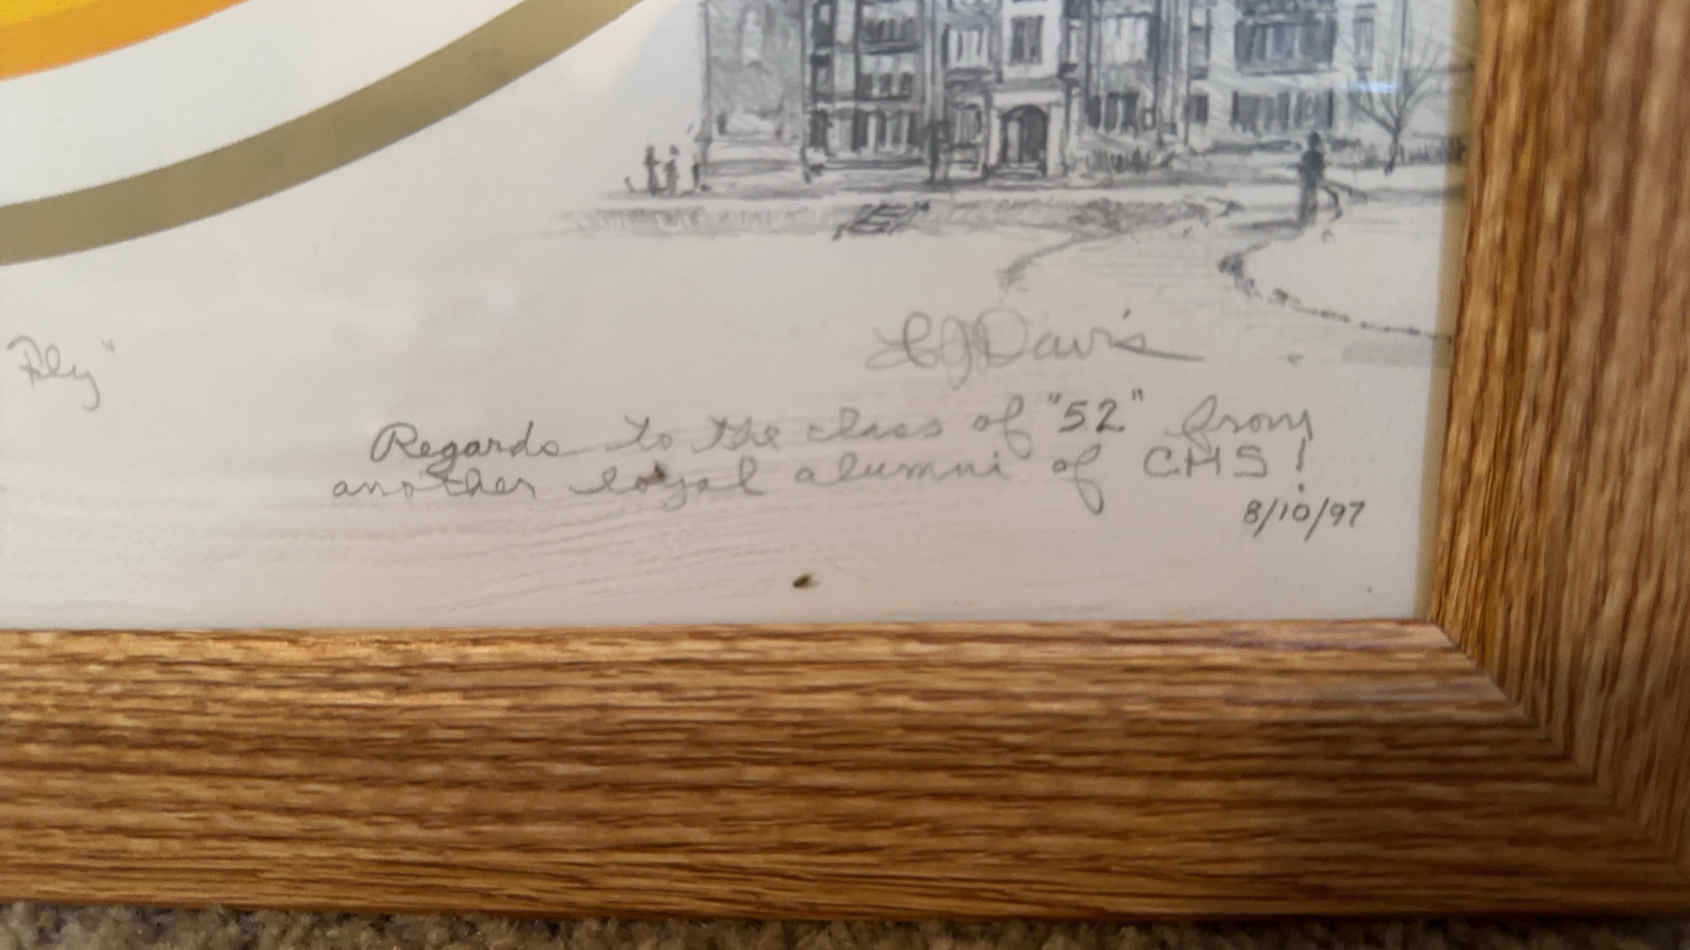 Fly"
Davis
Regards to the class of "52" from
another loyal alumni of CHS!
8/10/97